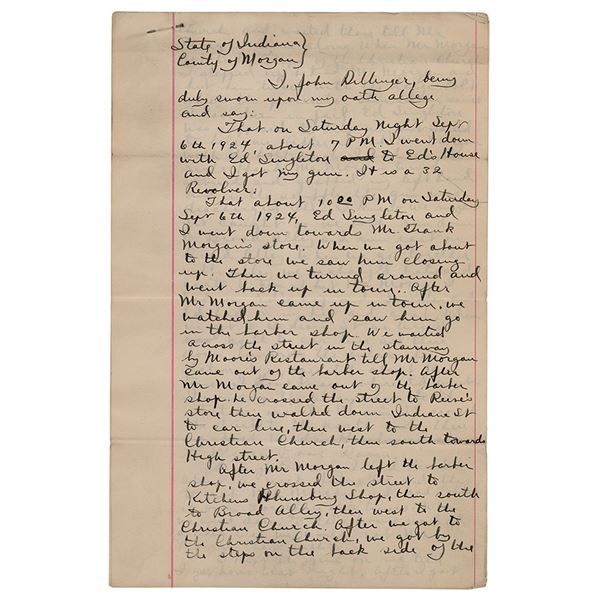 State of Indiana}
County of Morgan}
I, John Dillinger, being
duly sworn upon my oath allege
and say:
That on Saturday Night Sept
6th 1924, about 7 P.M. I went down
with Ed Singleton and to Ed's House
and I got my gun. It is a 32
Revolver:
That about 10 00 PM on Saturday
Sept 6th 1924, Ed Singleton and
I went down towards Mr Frank
Morgan's store. When we got about
to the store we saw him closing
up. Then we turned around and
went back up in town. After
Mr Morgan came up in town, we
watched him and saw him go
in the barber shop. We waited
across the street in the stairway
by Moore's Restaurant till Mr Morgan
came out of the barber shop. After
Mr Morgan came out of the barber
shop he crossed the street to
store then walked down Indiana St
to car line, then west to the
Christian Church, then south towards
High street.
After Mr Morgan left the barber
shop, we crossed the street to
Kitchens Plumbing Shop, then south
to Broad Alley, then west to the
Christian Church. After we got to
the Christian Church, we got by
the steps on the back side of the